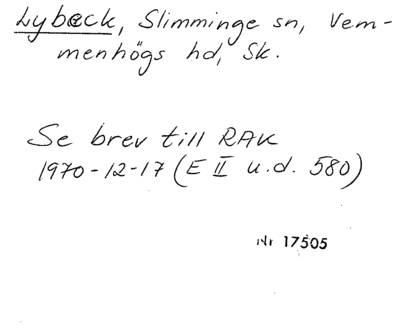 Lybeck, Slimminge sn, Vem-
menhögs hd, Sk.
Se brev till RAK
1970-12-17 (E II u.d. 580)
Nr 17505